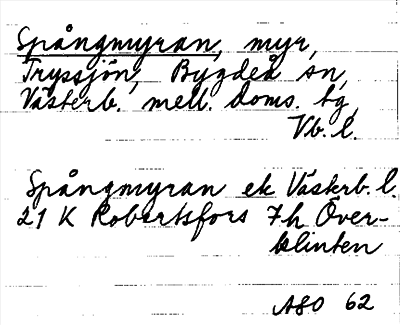 Spångmyran, myr,
Tryssjön, Bygdeå sn,
Västerb. mell. doms. tg,
Vb. l.
Spångmyran ek Västerb. l.
21 K Robertsfors 7h Över-
klinten
ASO 62